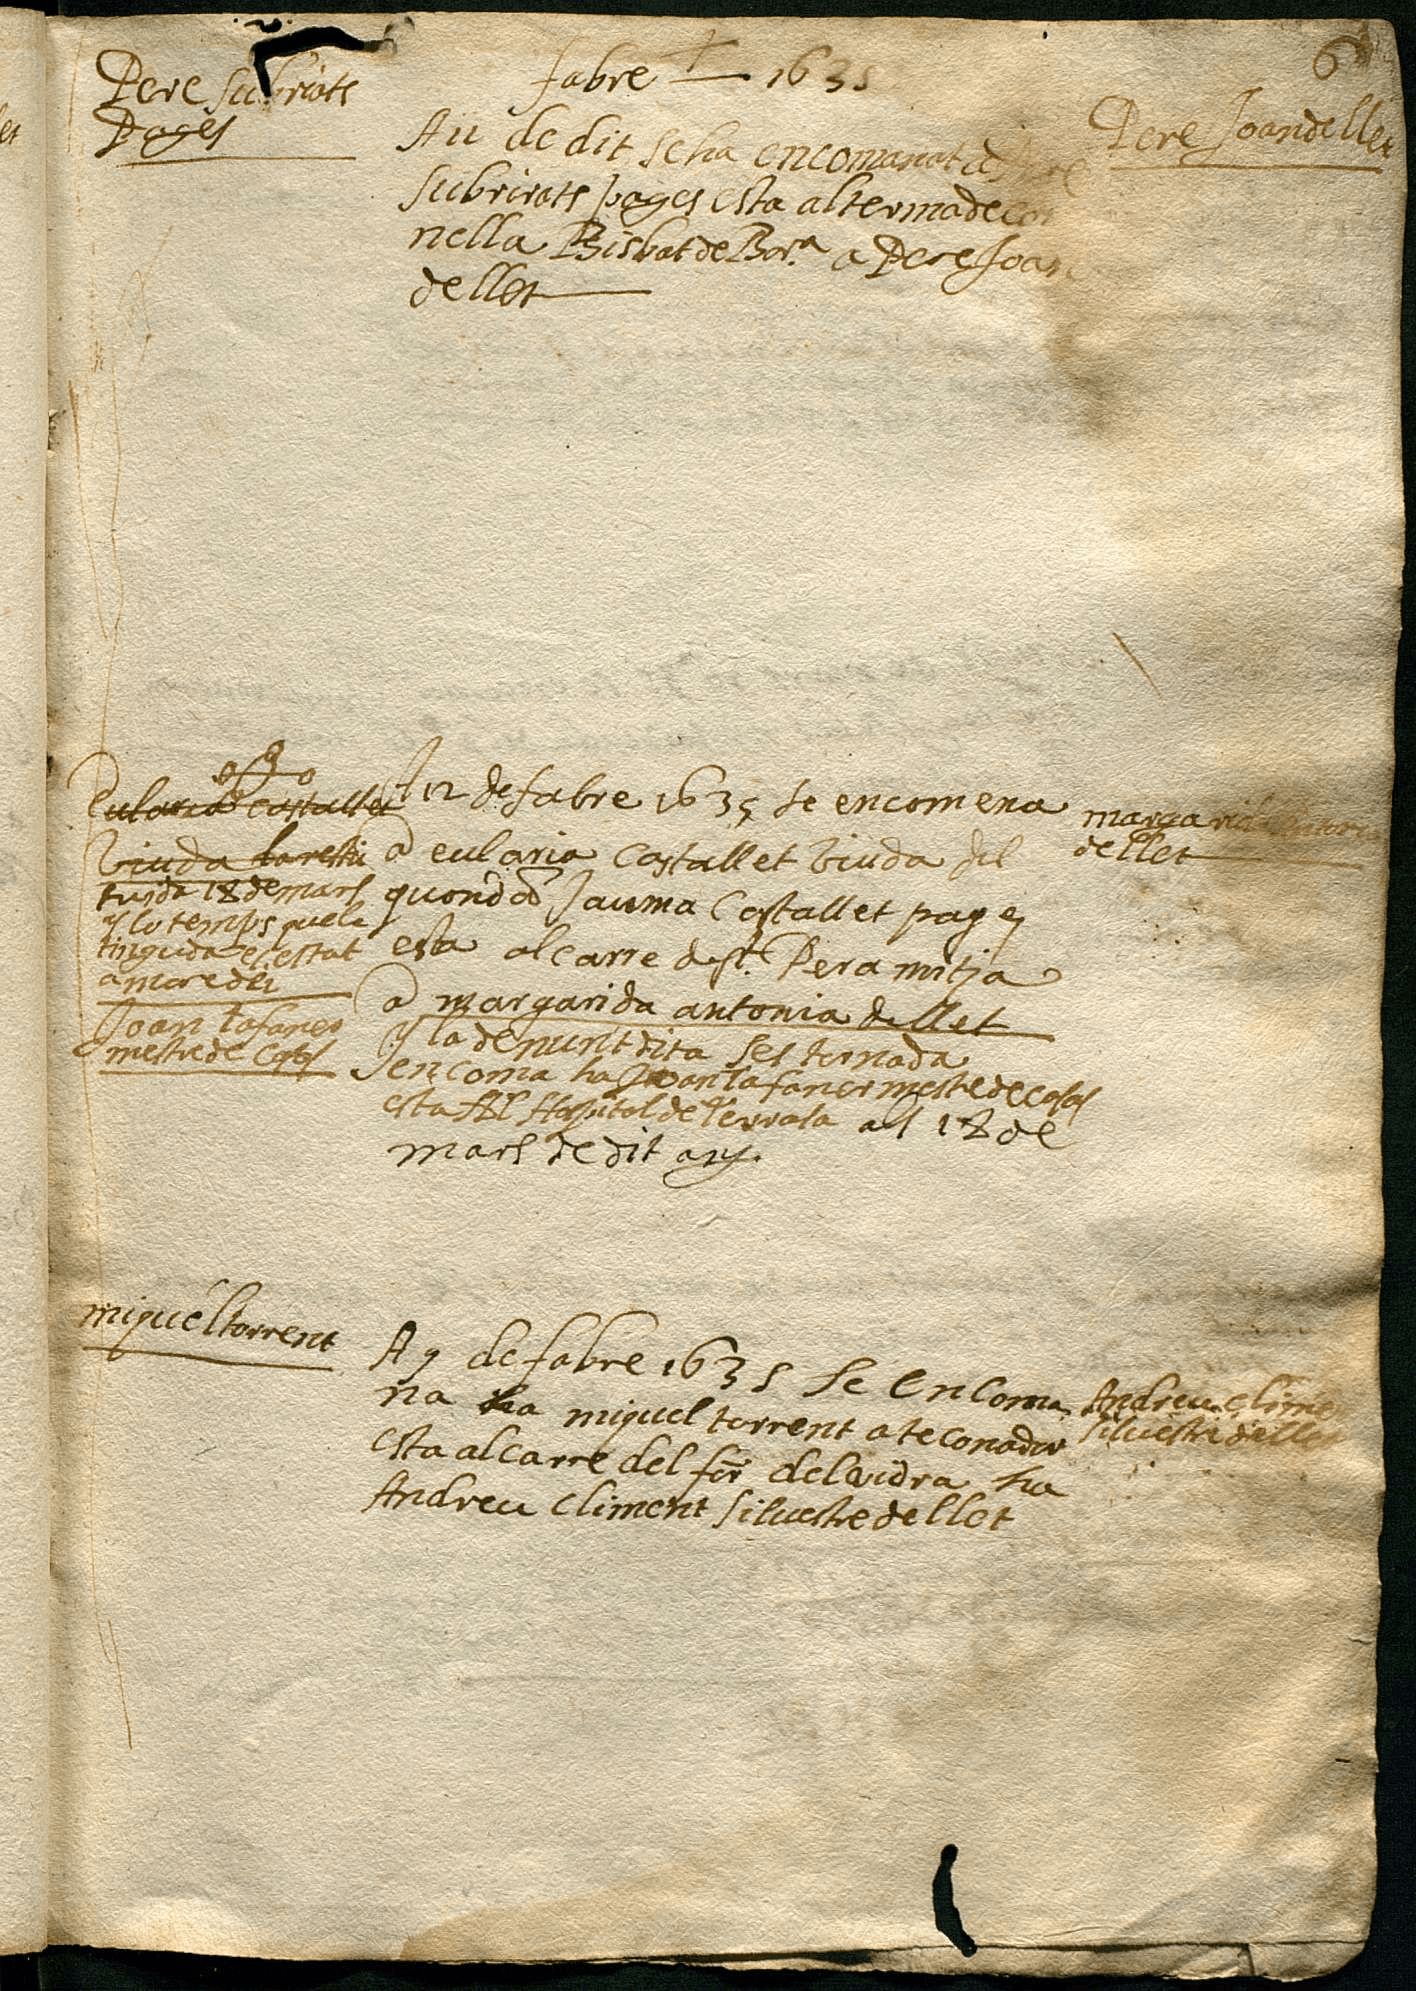 fabre 1635
6
Pere Subirats
Pages
A 11 de dit se ha encomanat a Pere
Subirats pages esta al terma de cor
nella Bisbat de Bar.ª a Pere Joan
de llet
Pere Joan de llet
Eularia Castallet
Viuda la resti
tuida 18 de mars
y lo temps que la
tinguda es estat
amore dei
Joan tafaner
mestre de Casas
A 12 de fabre 1635 se encomena
a eularia Castallet Viuda del
quondã Jauma Castallet pages
esta al carre de st. Pera mitja
a margarida antonia de llet
y la de nunt dita ses tornada
encoma ha Joan tafaner mestre de casas
esta Al Hospital de Terrasa als 18 de
mars de dit any.
margarida antonia
de llet
miquel torrent
A 9 de fabre 1635 Se Encoma
na ha miquel torrent ate conador
esta al carre del for del vidra ha
Andreu Climent Silvestre de llet
Andreu Climen
Silvestre de llet